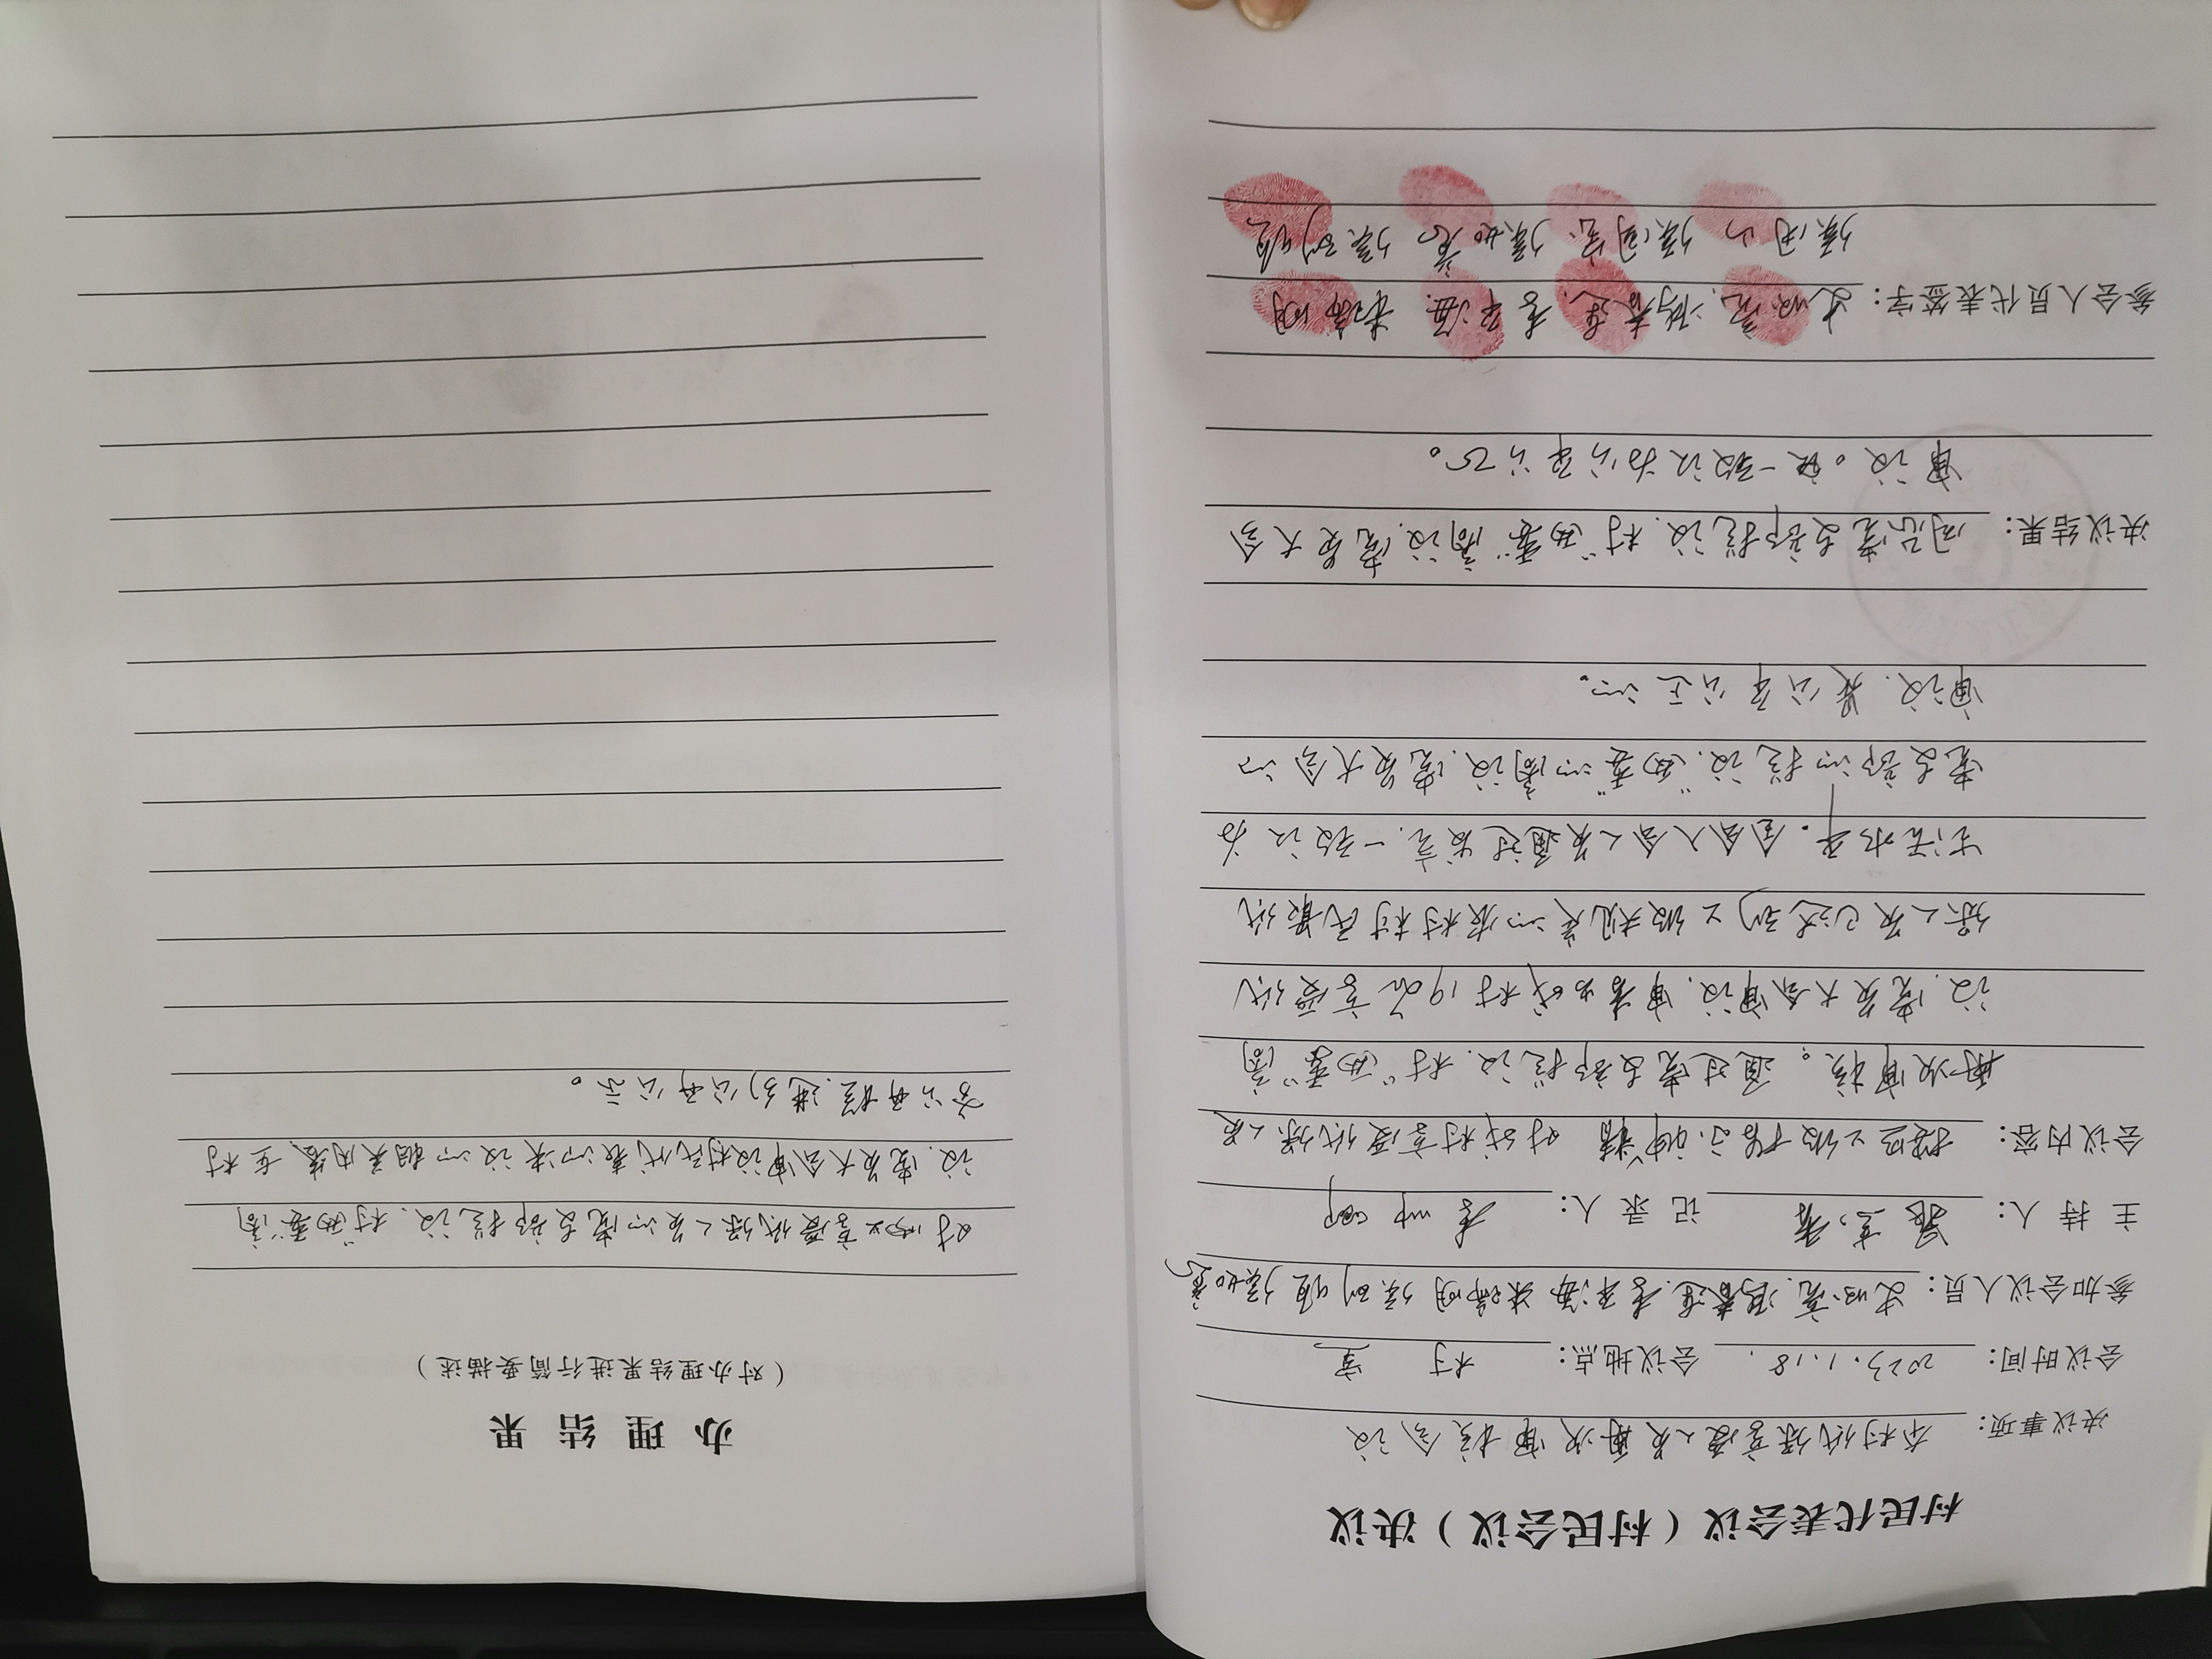 村民代表会议（村民会议）决议
决议事项： 本村低保享受人员再次审核会议
会议时间： 2023.1.18. 会议地点： 村 室
参加会议人员： 史 亮、冯春莲、李平海 朱瑞明 侯列恒 侯如意
主 持 人： 香 记 录 人： 李帅卿
会议内容： 按照上级指示神精 对我村享受低保人员
再次审核。通过党支部提议、村“两委”商
议、党员大会审议、审查出我村19名享受低
保人员已达到上级规定的农村村民最低
生活水平。全会入会人员通过发言、一致认为
党支部的提议、“两委”的商议、党员大会的
审议、是公平公正的。
决议结果： 同意党支部提议、村“两委”商议、党员大会
审议。 一致认为公平公正。
参会人员代表签字： 史 亮、冯春莲、李平海、朱瑞明
侯用山 侯国宝 侯如意 侯列恒
办 理 结 果
（对办理结果进行简要描述）
对 享受低保人员的党支部提议、村“两委”商
议、党员大会审议村民代表的决议的相关内容、在村
务公开栏、进行公开公示。